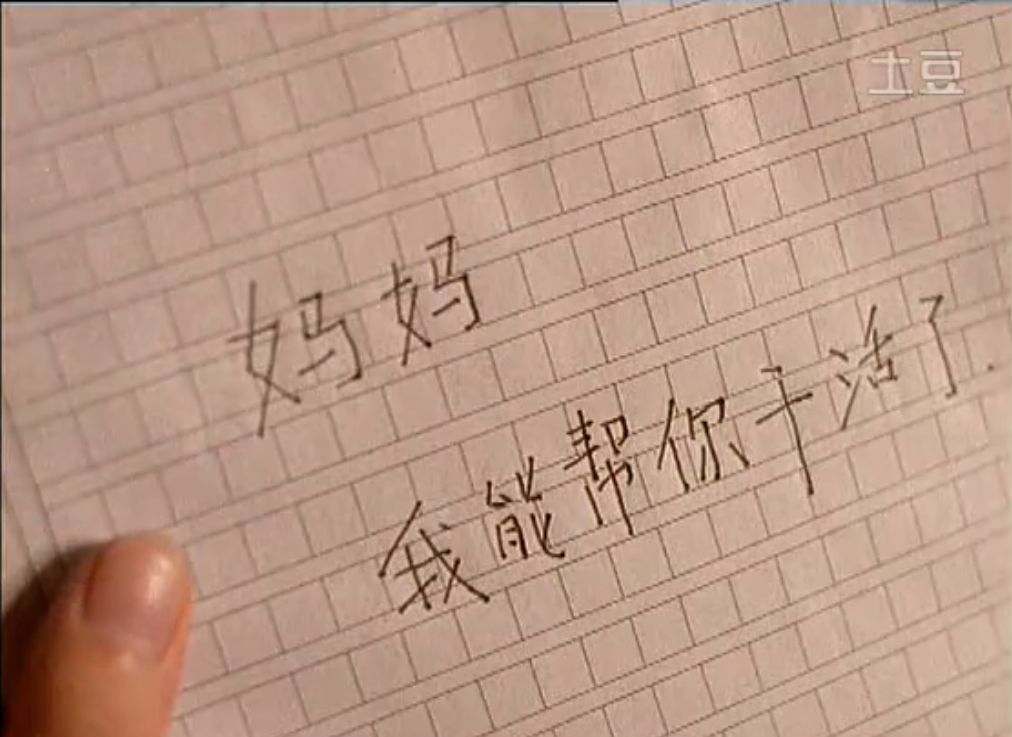 土豆
妈妈
我能帮你干活了.